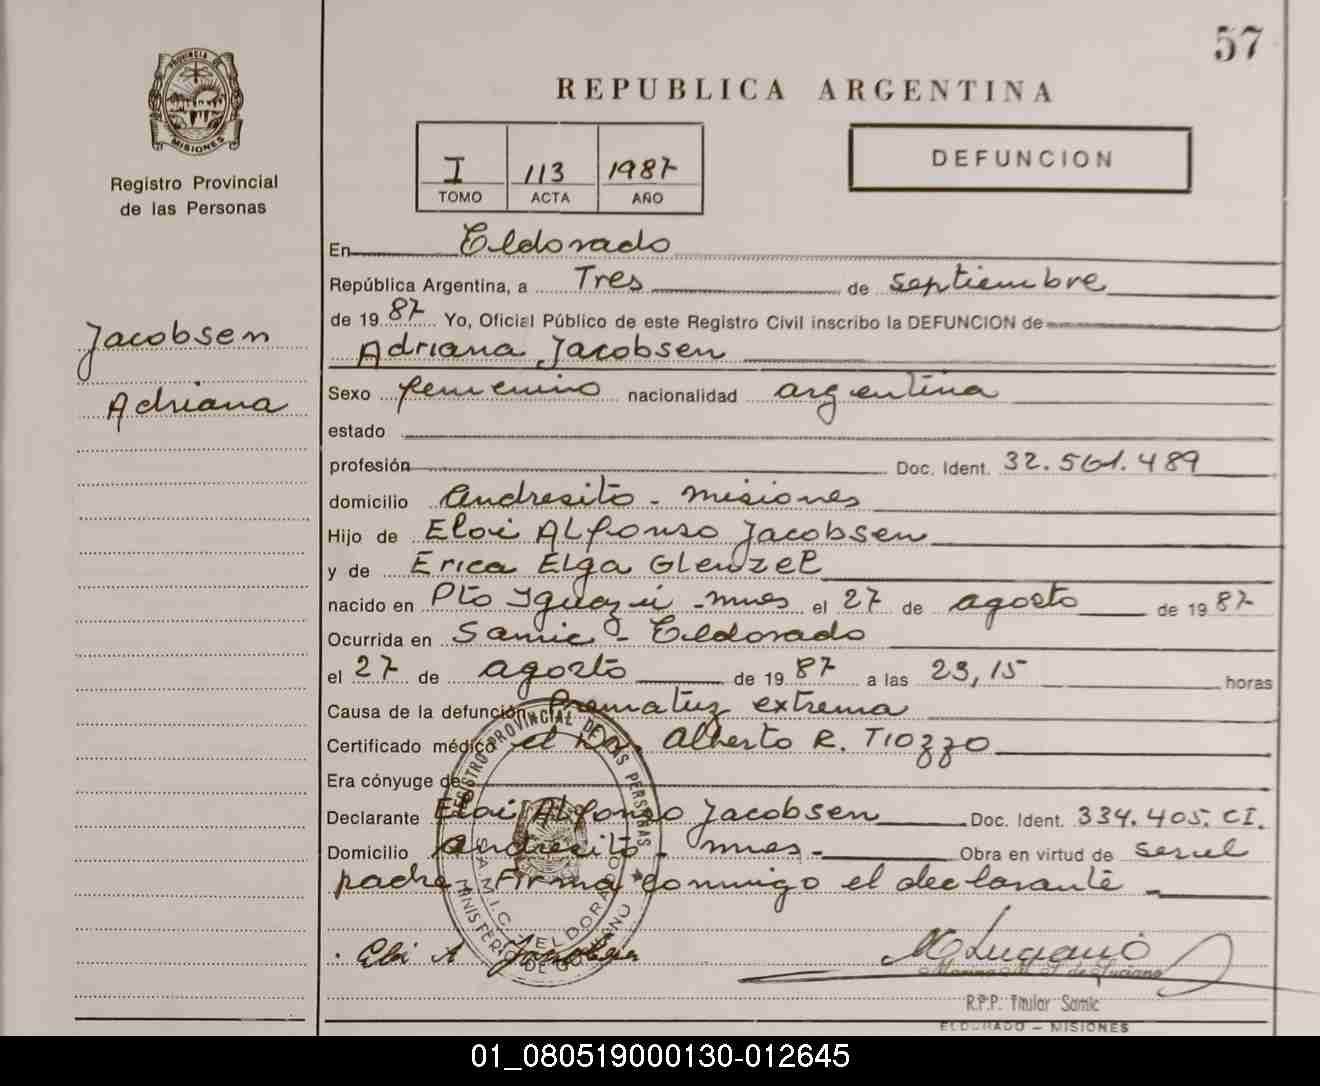 57
PROVINCIA DE
MISIONES
Registro Provincial
de las Personas
REPUBLICA ARGENTINA
I 113 1987
TOMO ACTA AÑO
DEFUNCION
Jacobsen
Adriana
En Eldorado
República Argentina, a Tres de septiembre
de 1987 Yo, Oficial Público de este Registro Civil inscribo la DEFUNCION de
Adriana Jacobsen
Sexo femenino nacionalidad argentina
estado
profesión Doc. Ident. 32.561.489
domicilio Andresito - misiones
Hijo de Eloi Alfonso Jacobsen
y de Erica Elga Glenzel
nacido en Pto Iguazú - mnes el 27 de agosto de 1987
Ocurrida en Samic - Eldorado
el 27 de agosto de 1987 a las 23,15 horas
Causa de la defunción Prematuz extrema
Certificado médico el Dr. Alberto R. Tiozzo
Era cónyuge de
Declarante Eloi Alfonso Jacobsen Doc. Ident. 334.405.CI.
Domicilio Andresito - mnes - Obra en virtud de ser el
padre - Firma conmigo el declarante
REGISTRO PROVINCIAL DE LAS PERSONAS
S.A.M.I.C. - ELDORADO
MINISTERIO DE GOBIERNO
Eloi A Jacobsen
M Luciano
Marina M. de Luciano
R.P.P. Titular Samic
ELDORADO - MISIONES
01_080519000130-012645